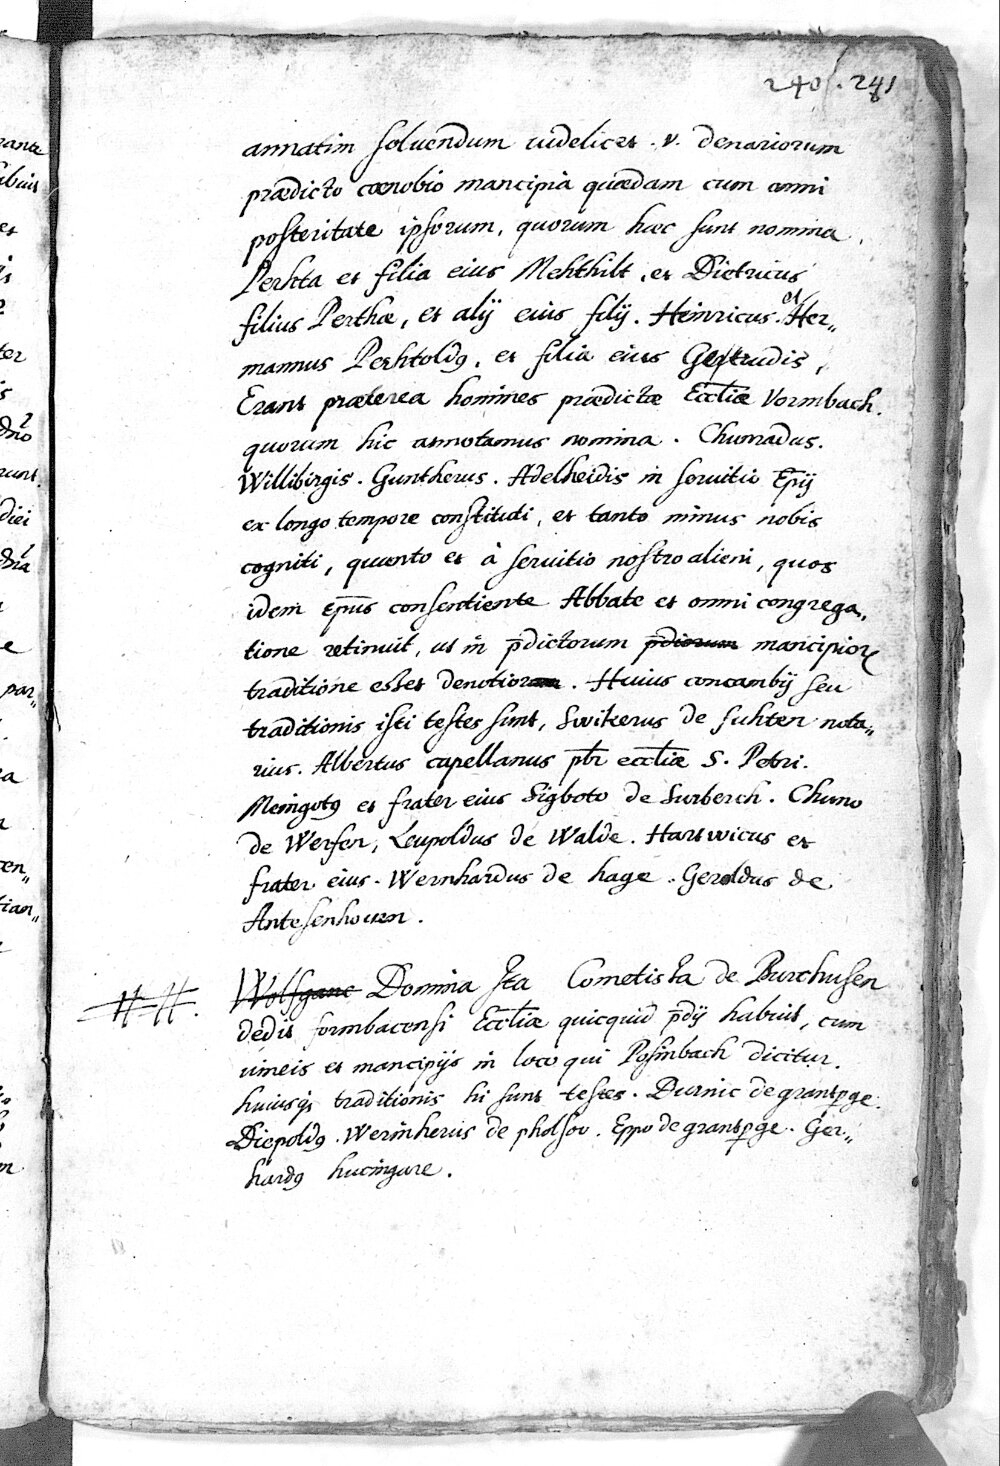 240/. 241
annatim soluendum uidelicet . v. denariorum
prædicto cœnobio mancipia quædam cum omni
posteritate ipsorum, quorum hæc sunt nomina,
Perhta et filia eius Mehthilt, et Dietricus
filius Perthæ, et alij eius filij. Heinricus. et Her„
mannus Perhtoldꝯ, et filia eius Gertrudis,
Erant præterea homines prædictæ Eccl̅iæ Vormbach.
quorum hic annotamus nomina. Chunradus.
Willibirgis. Guntherus. Adelheidis in seruitio Ep̅ij
ex longo tempore constituti, et tanto minus nobis
cogniti, quanto et à seruitio nostro alieni, quos
idem Ep̅us consentiente Abbate et omni congrega„
tione retinuit, ut in p̅dictorum p̅diorum mancipioꝝ
traditione esset deuotior. Huius concambij seu
traditionis isti testes sunt, Swikerus de Suhten nota„
rius. Albertus capellanus pb̅r eccl̅iæ S. Petri.
Meingotꝯ et frater eius Sigboto de Surberch. Chuno
de Werfen, Leupoldus de Walde. Hartwicus et
frater eius. Wernhardus de hage. Geroldus de
Antesenhouen.
Wolfganc Domina Ita Cometissa de Burchusen
dedit formbacensi Eccl̅iæ quicquid p̅dij habuit, cum
uineis et mancipijs in loco qui Posinbach dicitur.
huiusqꝫ traditionis hi sunt testes. Durnic de grantꝑge.
Diepoldꝯ. Werinherus de pholsou. Eppo de grantꝑge. Ger„
hardꝯ hucingare.